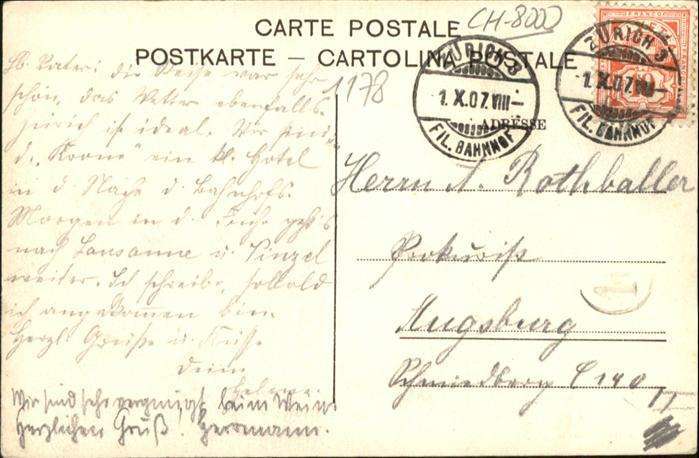 CARTE POSTALE
CH-8000
POSTKARTE – CARTOLINA POSTALE
1178
ZÜRICH 3
1.X.07.VIII–
FIL. BAHNHOF
ZÜRICH 3
1.X.07.VIII–
FIL. BAHNHOF
FRANCO
ADRESSE
Lb. Vater: die Reise war sehr
schön, das Wetter ebenfalls.
Zürich ist ideal. Wir sind
d. "Krone" ein kl. Hotel
in d. Nähe d. Bahnhofs.
Morgen in d. Früh geht's
nach Lausanne u.
weiter. Ich schreibe, sobald
ich angekommen bin.
Herzl. Grüße u. Küsse
Deine
Wir sind sehr vergnügt beim Wein.
Herzlichen Gruß. Herrmann.
Herrn A. Rothballer
Prokurist
Augsburg
Schmiedberg C 140
II
1